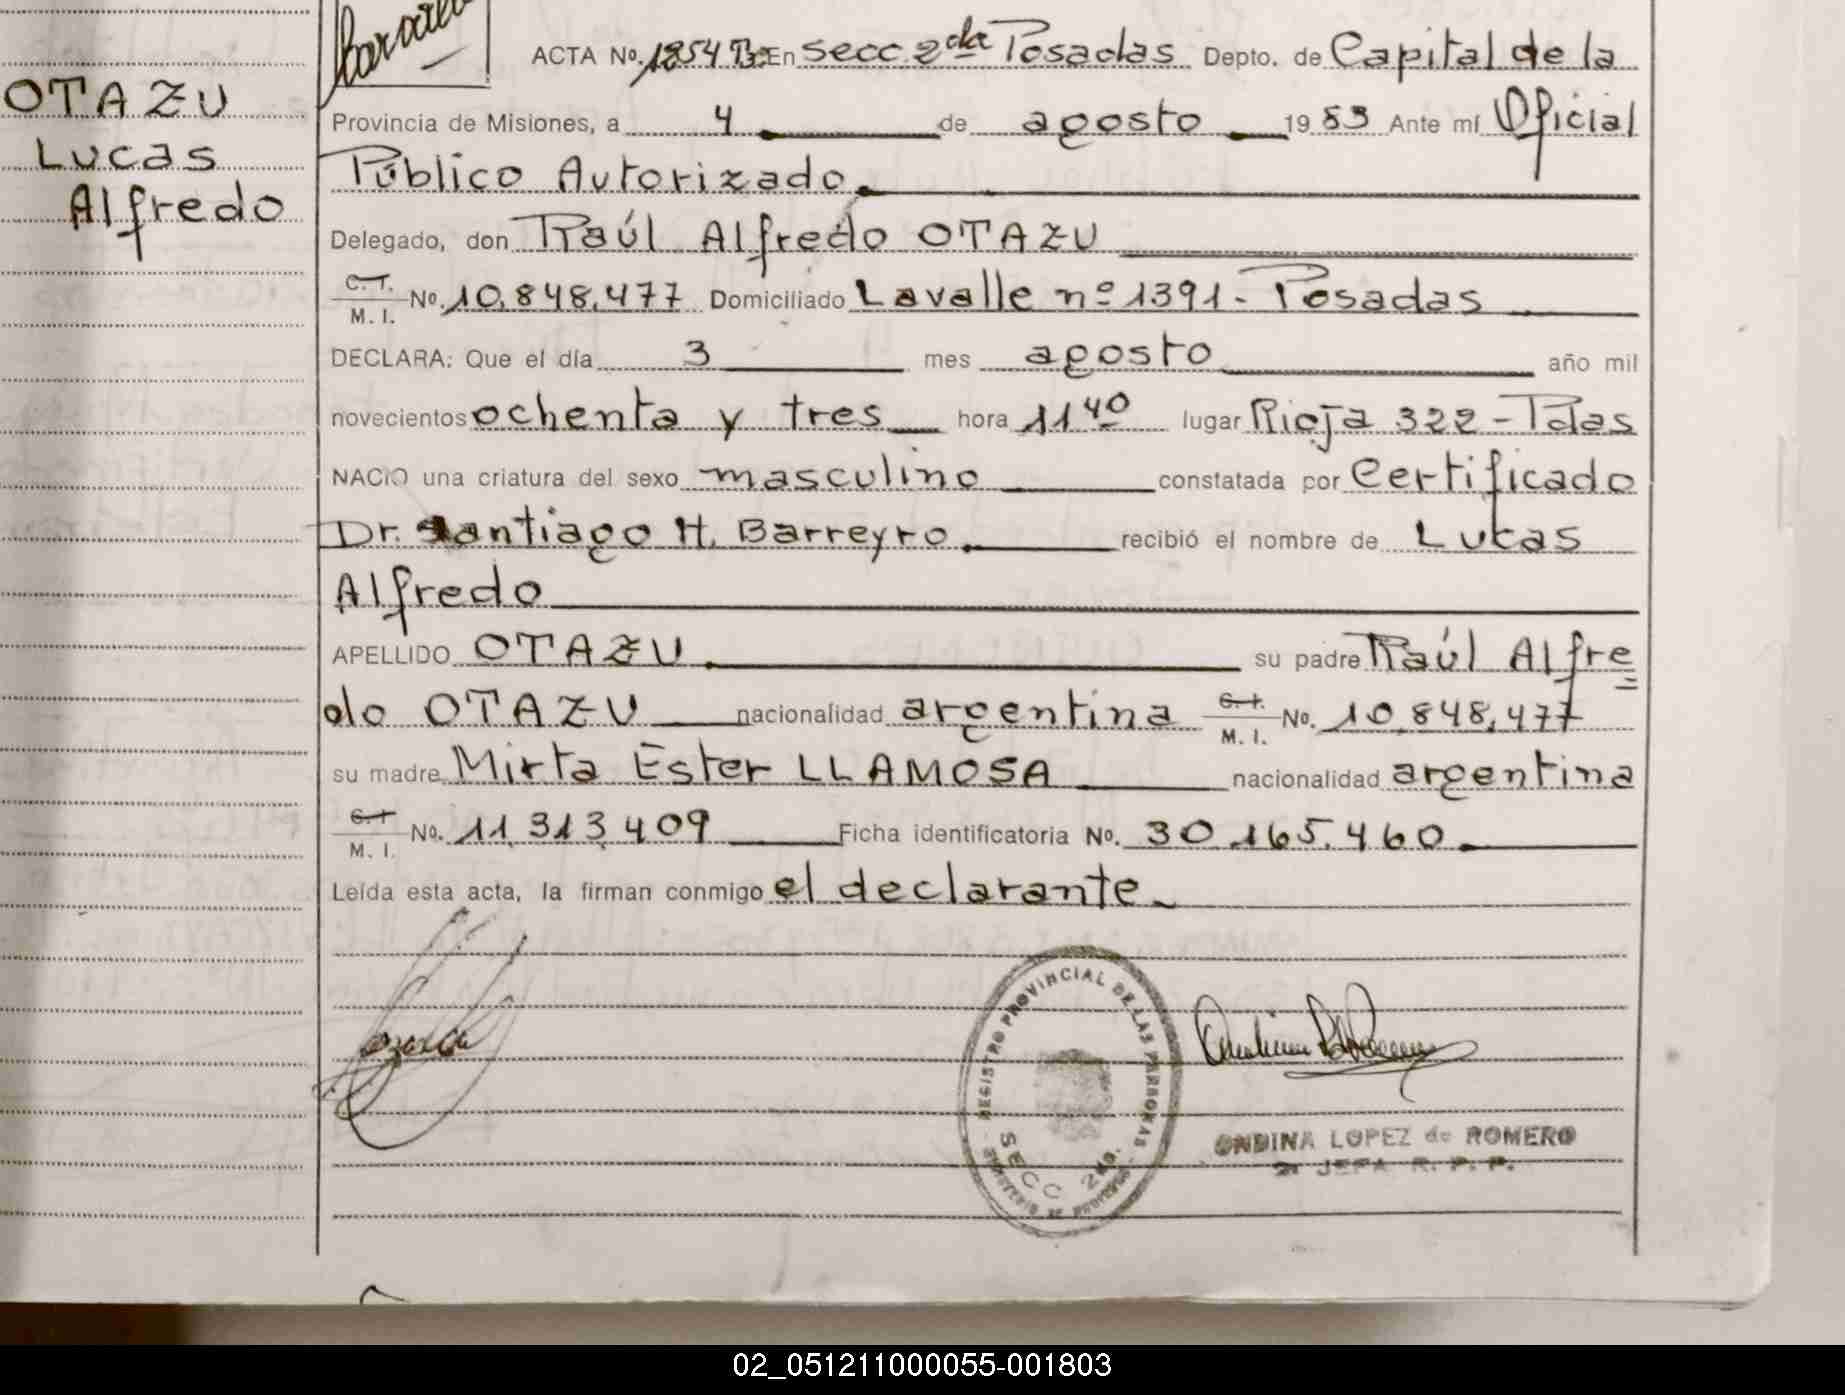 ACTA No. 1854 En Secc. 2da Posadas Depto. de Capital de la
OTAZU
Lucas
Alfredo
Provincia de Misiones, a 4 de agosto 1983 Ante mí Oficial
Público Autorizado.
Delegado, don Raúl Alfredo OTAZU
C. I.
M. I. No. 10,848,477 Domiciliado Lavalle nº 1391 - Posadas
DECLARA: Que el día 3 mes agosto año mil
novecientos ochenta y tres hora 11 40 lugar Rioja 322 - Pdas
NACIO una criatura del sexo masculino constatada por Certificado
Dr. Santiago H. Barreyro. recibió el nombre de Lucas
Alfredo
APELLIDO OTAZU. su padre Raúl Alfre
do OTAZU nacionalidad argentina C. I. M. I. No. 10,848,477
su madre Mirta Ester LLAMOSA nacionalidad argentina
C. I. M. I. No. 11,313,409 Ficha identificatoria No. 30.165.460
Leída esta acta, la firman conmigo el declarante.
REGISTRO PROVINCIAL DE LAS PERSONAS
SECC 2da.
ONDINA LOPEZ de ROMERO
JEFA R. P. P.
02_051211000055-001803